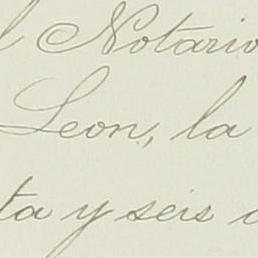 l Notario
Leon, la
ta y seis